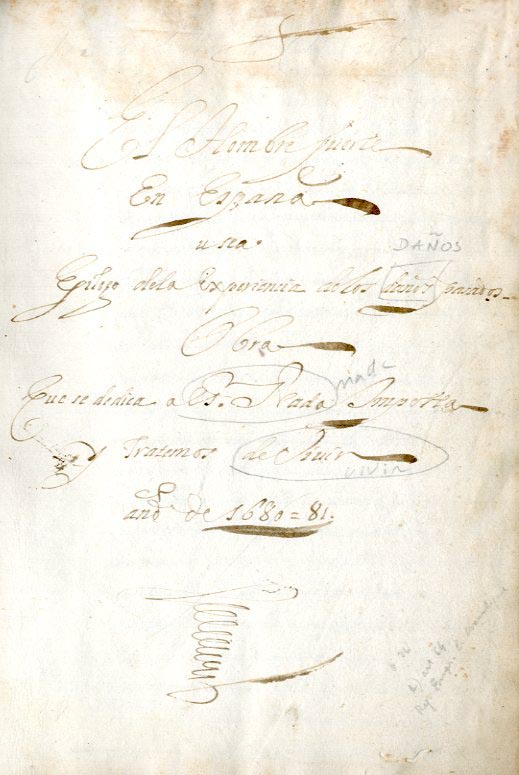 El Hombre fuerte
En España
u sea.
DAÑOS
Espejo dela Experiencia delos daños pasados
Obra
Que se dedica a Dn. Nada Importa
nade
y Tratemos de Vivir
vivir
año de 1680=81.